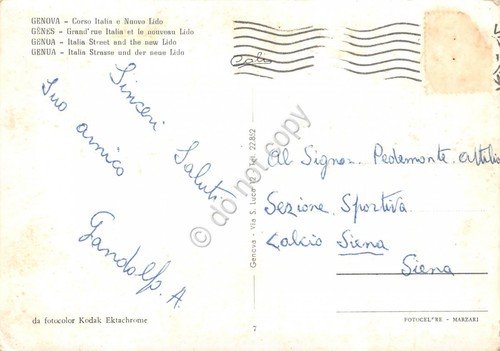 GENOVA - Corso Italia e Nuovo Lido
GÊNES - Grand'rue Italia et le nouveau Lido
GENUA - Italia Street and the new Lido
GENUA - Italia Strasse und der neue Lido
Sinceri Saluti
Suo amico
Gandolfo. A
Al Signor. Pedemonte. Attilio
Sezione. Sportiva
Calcio Siena
Siena
Genova - Via S. Luca Tel. 22.852
© do not copy
da fotocolor Kodak Ektachrome
7
FOTOCEL*RE - MARZARI